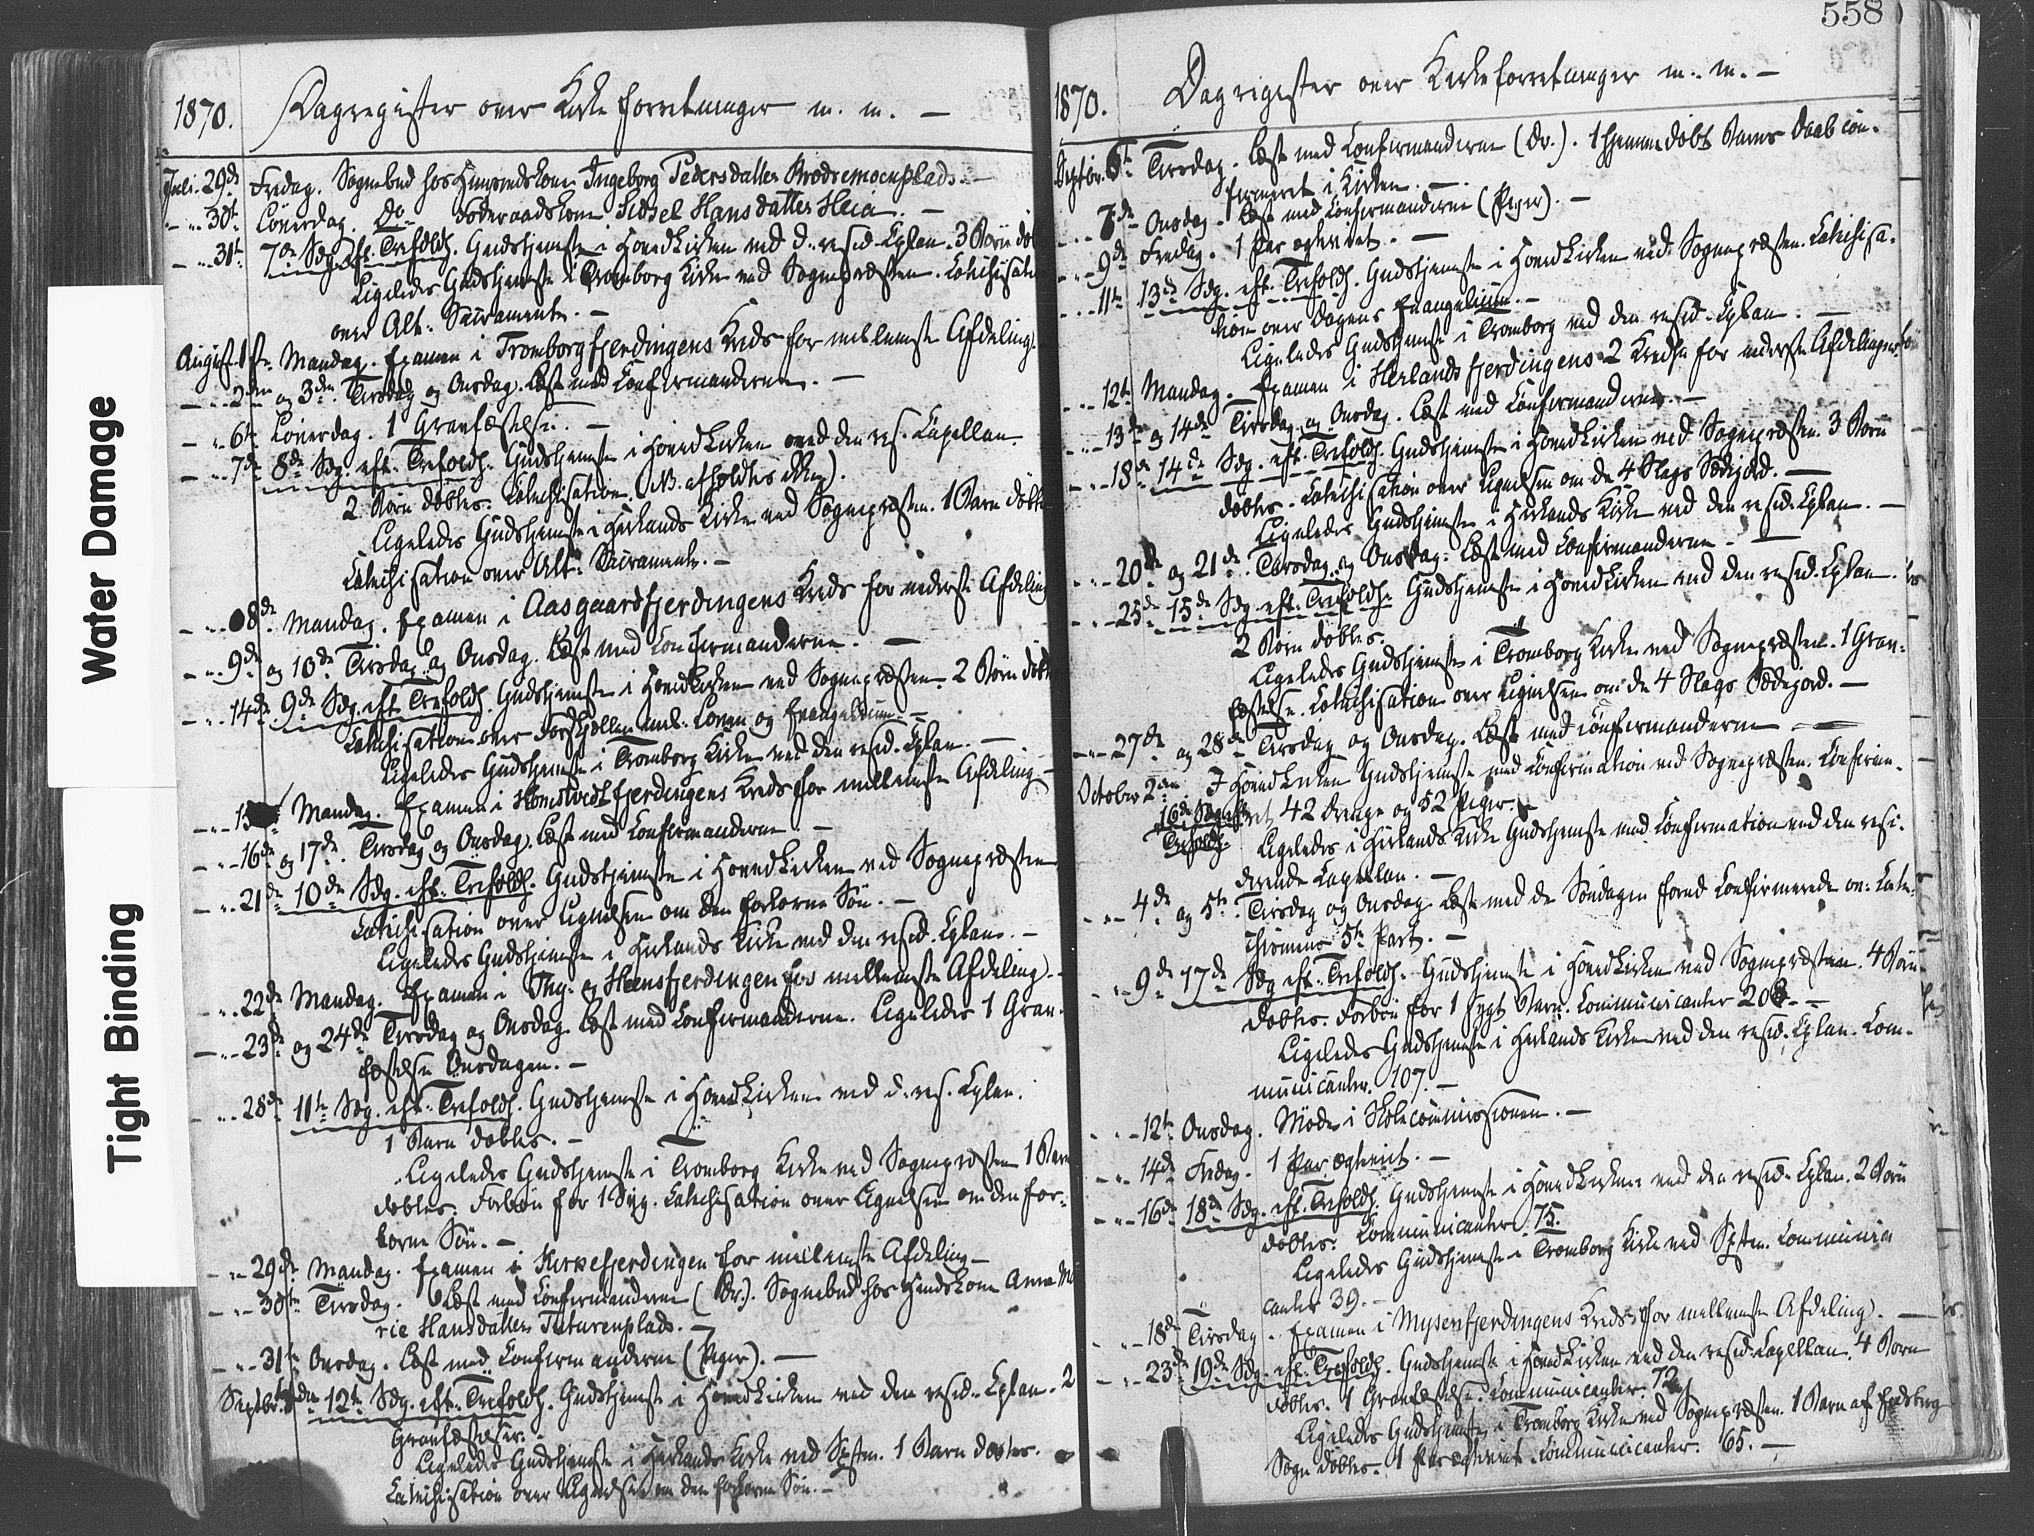 Water Damage
Tight Binding
1870. Dagregister over Kirkeforretninger m. m. —
Juli. 29de Fredag. Sognebud hos Huusmandskone Ingeborg Pedersdatter Brødremoenplads. —
- „ - 30te Løverdag. do Føderaadskone Sidsel Hansdatter Heia. —
- „ - 31te 7de Søg. eft. Trefoldh. Gudstjeneste i Hovedkirken ved d. resid. Cplan. 3 Børn døb
Ligeledes Gudstjeneste i Tromborg Kirke ved Sognepræsten. Catechisati
over Alt: Sacramente. —
August 1ste Mandag. Examen i Tromborgfjerdingens Kreds for mellemste Afdeling.
- „ - 2den og 3die Tirsdag og Onsdag. Læst med Confirmanderne. —
- „ - 6te Løverdag. 1 Gravfæstelse. —
- „ - 7de 8de Søg. eft. Trefoldh. Gudstjeneste i Hovedkirken ved den res. Capellan.
2 Børn døbtes. Catechisation (NB. afholdtes ikke).
Ligeledes Gudstjeneste i Herlands Kirke ved Sognepræsten. 1 Barn døbte
Catechisation over Alt: Sacramente. —
- „ - 8de Mandag. Examen i Aasgaardsfjerdingens Kreds for nederste Afdeling
- „ - 9de og 10de Tirsdag og Onsdag. Læst med Confirmanderne. —
- „ - 14de 9de Søg. eft. Trefoldh. Gudstjeneste i Hovedkirken ved Sognepræsten. 2 Børn døbt
Catechisation over Forskjellen mel. Loven og Evangelium. —
Ligeledes Gudstjeneste i Tromborg Kirke ved den resid. Cplan. —
- „ - 15 Mandag. Examen i Homstvedtfjerdingens Kreds for mellemste Afdeling —
- „ - 16de og 17de Tirsdag og Onsdag. Læst med Confirmanderne. —
- „ - 21de 10de Søg. eft. Trefoldh. Gudstjeneste i Hovedkirken ved Sognepræsten
Catechisation over Lignelsen om den forlorne Søn. —
Ligeledes Gudstjeneste i Herlands Kirke ved den resid. Cplan. —
- „ - 22de Mandag. Examen i Thy- og Heensfjerdingen for mellemste Afdeling. —
- „ - 23de og 24de Tirsdag og Onsdag. Læst med Confirmanderne. Ligeledes 1 Grav-
fæstelse Onsdagen. —
- „ - 28de 11te Søg. eft. Trefoldh. Gudstjeneste i Hovedkirken ved d. res. Cplan.
1 Barn døbtes. —
Ligeledes Gudstjeneste i Tromborg Kirke ved Sognepræsten 1 Barn
døbtes. Forbøn for 1 Syg. Catechisation over Lignelsen om den for-
lorne Søn. —
- „ - 29de Mandag. Examen i Kirkefjerdingen for mellemste Afdeling —
- „ - 30te Tirsdag. Læst med Confirmanderne (Dr.). Sognebud hos Huudskone Anne Ma
rie Hansdatter Tuturenplads. —
- „ - 31te Onsdag. Læst med Confirmanderne (Piger). —
Septbr. 4de 12te Søg. eft. Trefoldh. Gudstjeneste i Hovedkirken ved den resid. Cplan. 2
Gravfæstelser.
Ligeledes Gudstjeneste i Herlands Kirke ved Spsten. 1 Barn døbtes.
Catechisation over Lignelsen om den forlorne Søn. —
558
1870. Dagregister over Kirkeforretninger m. m. —
Septbr. 6te Tirsdag. Læst med Confirmanderne (Dr.). 1 hjemmedøbt Barns Daab con-
firmeret i Kirken. —
- „ - 7de Onsdag. Læst med Confirmanderne (Piger). —
- „ - 9de Fredag. 1 Par ægteviet. —
- „ - 11te 13de Søg. eft. Trefoldh. Gudstjeneste i Hovedkirken ved Sognepræsten. Catechisa-
tion over Dagens Evangelium. —
Ligeledes Gudstjeneste i Tromborg ved den resid. Cplan. —
- „ - 12te Mandag. Examen i Herlandsfjerdingens 2 Kredse for nederste Afdelinger.
- „ - 13de og 14de Tirsdag og Onsdag. Læst med Confirmanderne. —
- „ - 18de 14de Søg. eft. Trefoldh. Gudstjeneste i Hovedkirken ved Sognepræsten 3 Børn
døbtes. Catechisation over Lignelsen om de 4 Slags Sædejord. —
Ligeledes Gudstjeneste i Herlands Kirke ved den resid. Cplan. —
- „ - 20de og 21de Tirsdag og Onsdag. Læst med Confirmanderne. —
- „ - 25de 15de Søg. eft. Trefoldh. Gudstjeneste i Hovedkirken ved den resid. Cplan.
2 Børn døbtes.
Ligeledes Gudstjeneste i Tromborg Kirke ved Sognepræsten. 1 Grav-
fæstelse. Catechisation over Lignelsen om de 4 Slags Sædejord. —
- „ - 27de og 28de Tirsdag og Onsdag. Læst med Confirmanderne —
October 2den I Hovedkirken Gudstjeneste med Confirmation ved Sognepræsten. Confirme-
16de Søg. eft. ret 42 Drenge og 52 Piger. —
Trefoldh. Ligeledes i Herlands Kirke Gudstjeneste med Confirmation ved den resi-
derende Capellan. —
- „ - 4de og 5te Tirsdag og Onsdag. Læst med de Søndagen forud Confirmerede ov: Cate-
chismens 5te Part. —
- „ - 9de 17de Søg. eft. Trefoldh. Gudstjeneste i Hovedkirken ved Sognepræsten. 4 Børn
døbtes. Forbøn for 1 sygt Barn. Communicanter 206. —
Ligeledes Gudstjeneste i Herlands Kirke ved den resid. Cplan. Com-
municanter. 107. —
- „ - 12te Onsdag. Møde i Skolecommissionen. —
- „ - 14de Fredag. 1 Par ægteviet. —
- „ - 16de 18de Søg. eft. Trefoldh. Gudstjeneste i Hovedkirken ved den resid. Cplan. 2 Børn
døbtes. Communicanter 75.
Ligeledes Gudstjeneste i Tromborg Kirke ved Spsten. Communi
canter 39. —
- „ - 18de Tirsdag. Examen i Mysenfjerdingens Kreds for mellemste Afdeling. —
- „ - 23de 19de Søg. eft. Trefoldh. Gudstjeneste i Hovedkirken ved den resid. Capellan. 4 Børn
døbtes. 1 Gravfæstelse. Communicanter. 72.
Ligeledes Gudstjeneste i Tromborg Kirke ved Sognepræsten. 1 Barn af Eidsberg
Sogn døbtes. 1 Par ægteviet. Communicanter. 65. —